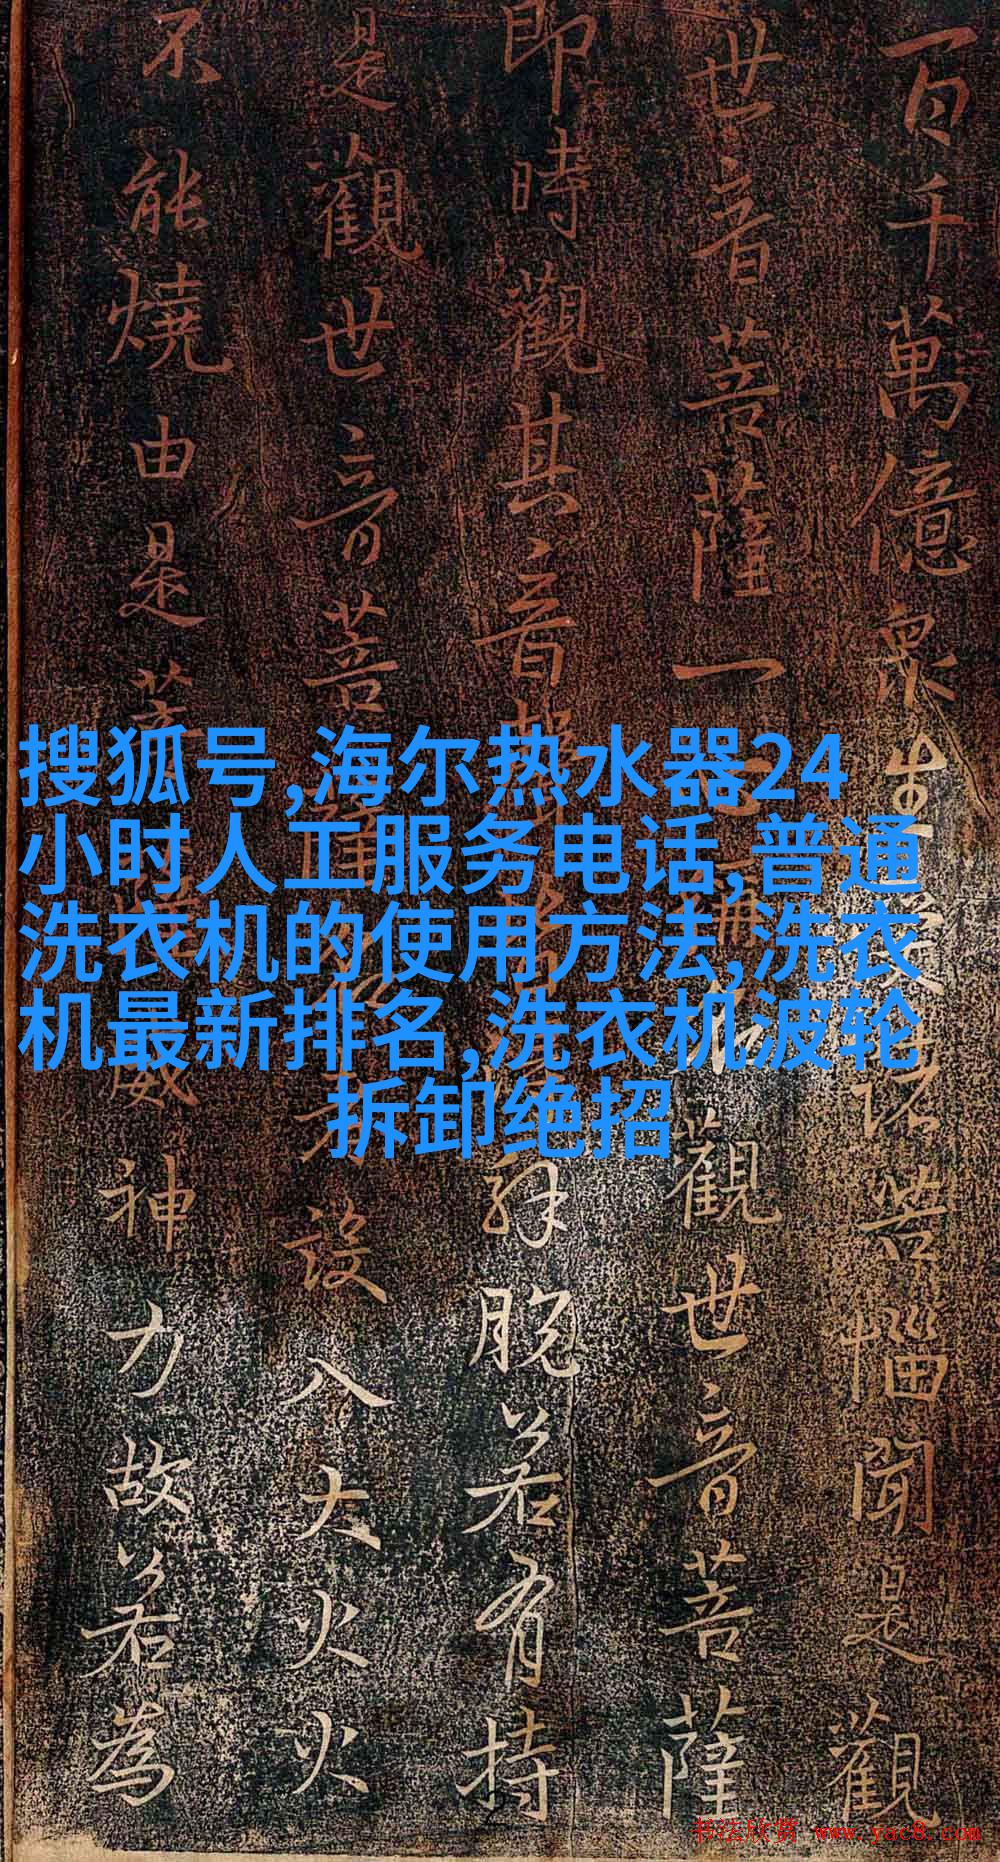 百千萬億眾生受諸苦惱聞是觀
世音菩薩一心稱名觀世音菩薩
即時觀其音聲解脫若有持
是觀世音菩薩名者設入大火火
不能燒由是菩薩威神力故若為
搜狐号,海尔热水器24
小时人工服务电话,普通
洗衣机的使用方法,洗衣
机最新排名,洗衣机波轮
拆卸绝招
书法欣赏 www.yac8.com